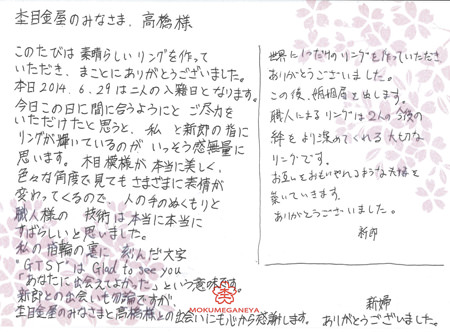 杢目金屋のみなさま、高橋様
このたびは 素晴らしい リングを作って
いただき、まことにありがとうございました。
本日2014.6.29は二人の入籍日となります。
今日この日に間に合うようにと ご尽力を
いただけたと思うと、私 と新郎の指に
リングが輝いているのが いっそう感無量に
思います。木目模様が本当に美しく、
色々な角度で見てもさまざまに表情が
変わってくるので、人の手のぬくもりと
職人様の 技術は本当に本当に
すばらしいと思いました。
私の指輪の裏に刻んだ文字
"GTSY"は Glad to see you
「あなたに出会えてよかった」という意味です。
新郎との出会いも勿論ですが、
杢目金屋のみなさまと高橋様との出会いにも心から感謝します。
新婦
ありがとうございました。
世界に1つだけのリングを作っていただき
ありがとうございました。
この後、婚姻届を出します。
職人によるリングは2人の今後の
絆をより深めてくれる 大切な
リングです。
お互いをおもいやれるような夫婦を
築いていきます。
ありがとうございました。
新郎
MOKUMEGANEYA